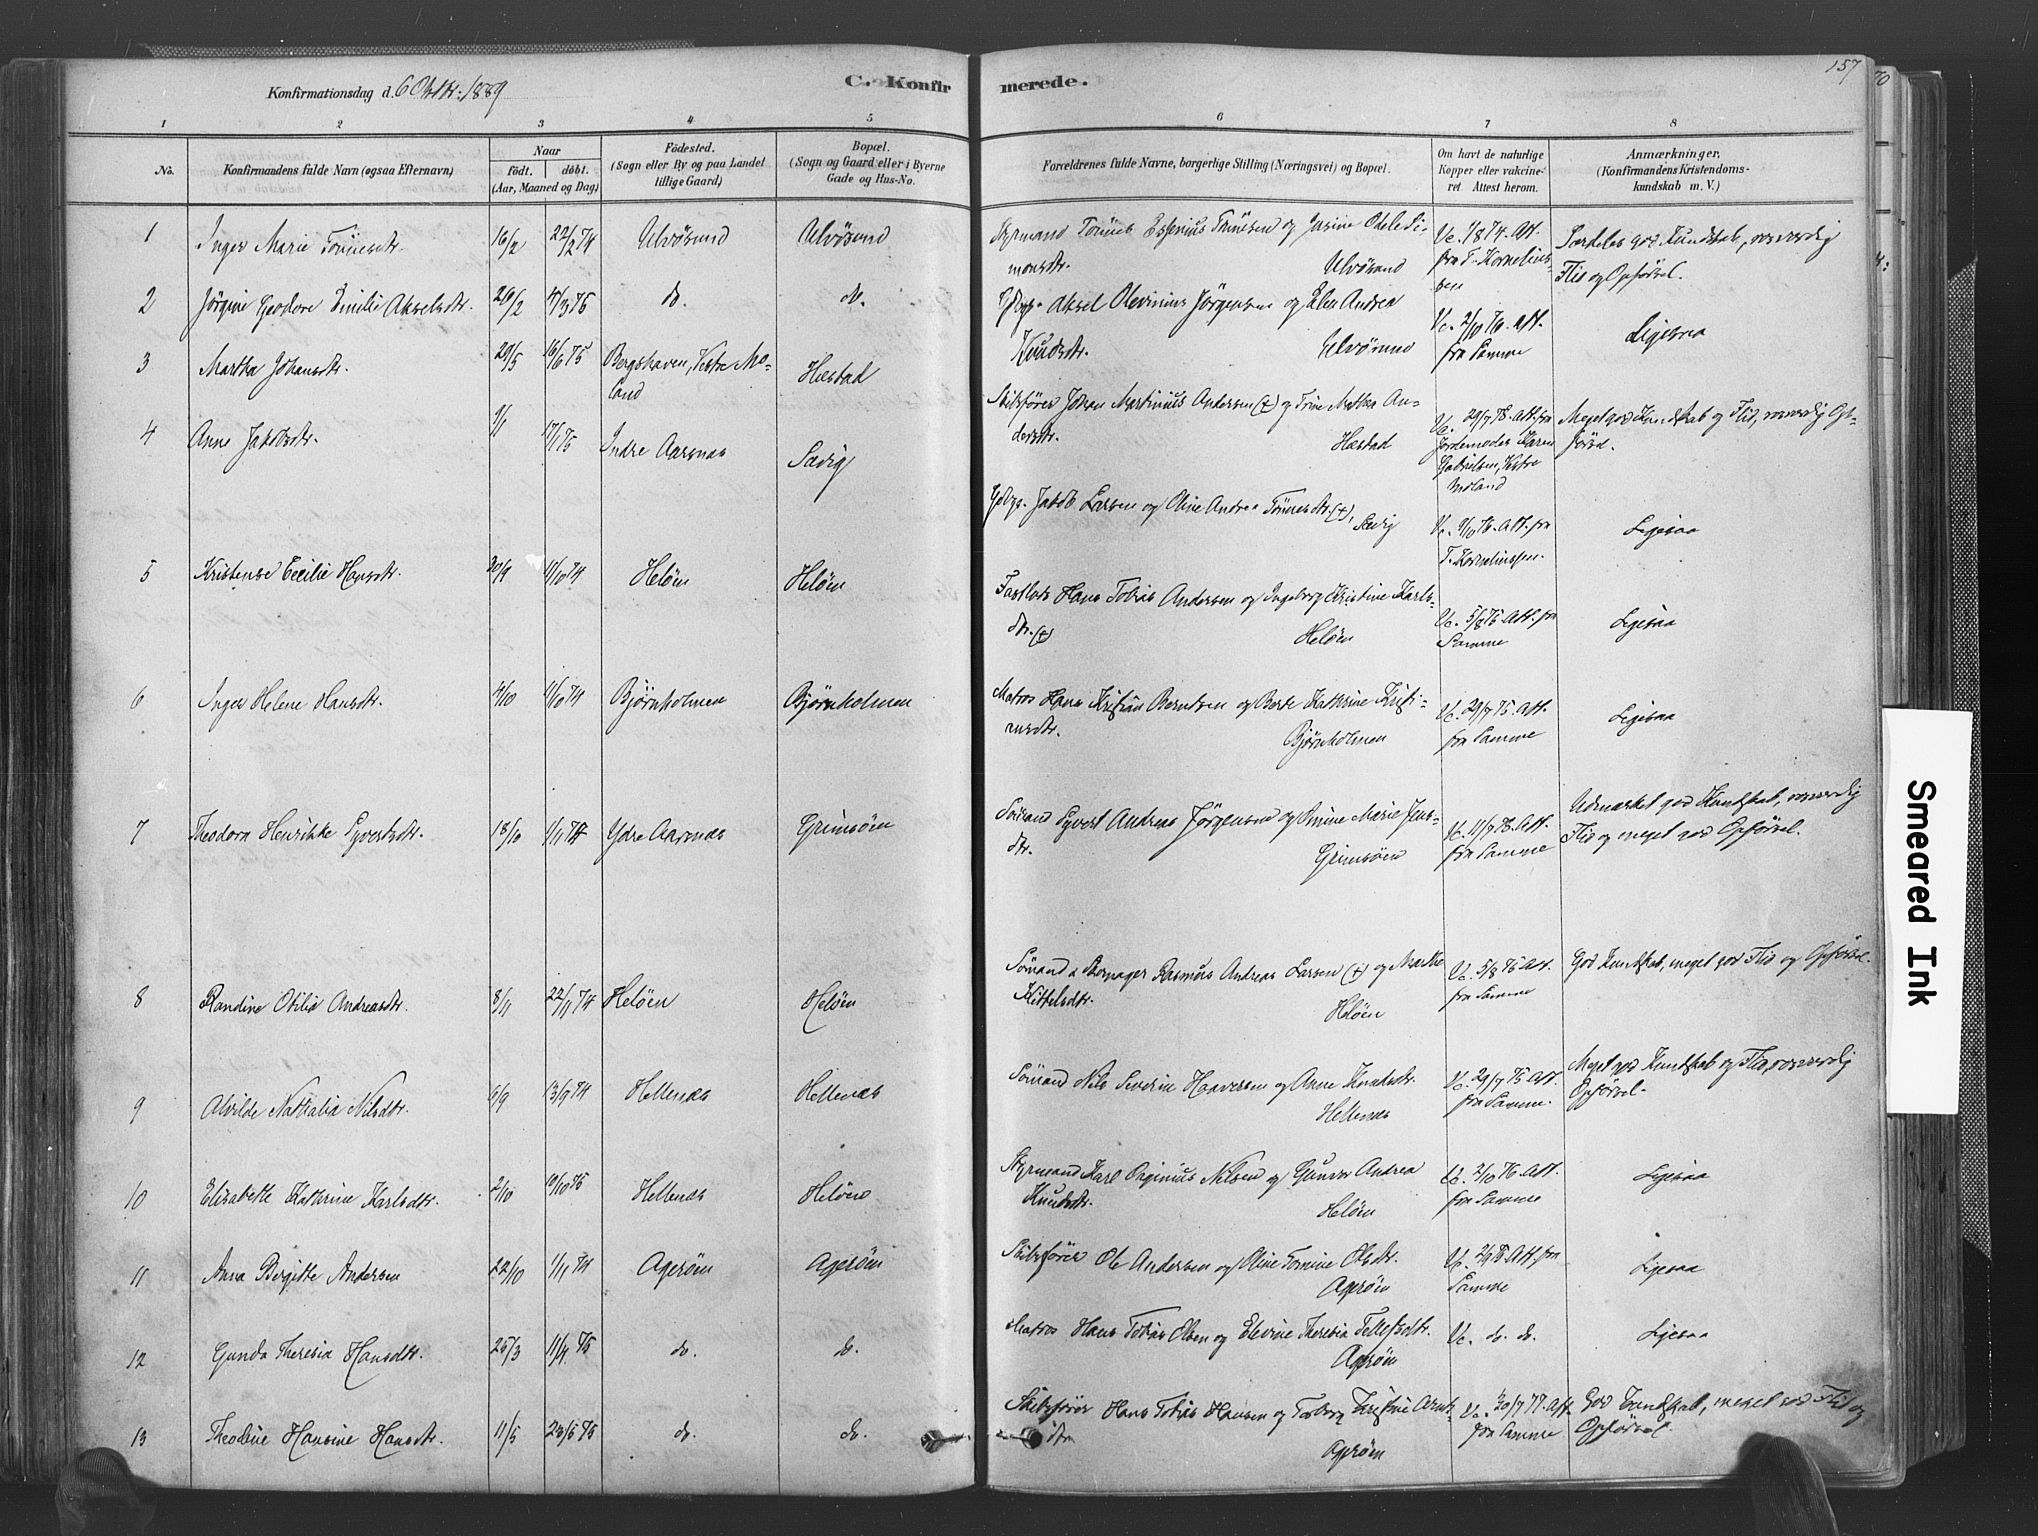 157
Konfirmationsdag d. 6 Oktbr: 1889
C. Konfirmerede.
1 2 3 4 5 6 7 8
No.
Konfirmandens fulde Navn (ogsaa Efternavn)
Naar
født. døbt.
(Aar, Maaned og Dag)
Fødested.
(Sogn eller By og paa Landet
tillige Gaard)
Bopæl.
(Sogn og Gaard eller i Byerne
Gade og Hus-No.
Forældrenes fulde Navne, borgerlige Stilling (Næringsvei) og Bopæl.
Om havt de naturlige
Kopper eller vakcine-
ret Attest herom.
Anmærkninger.
(Konfirmandens Kristendoms-
kundskab m. V.)
1 Inger Marie Tønnesdtr. 16/2 22/2 74 Ulvøsund Ulvøsund
Styrmand Tønnes Tønnesen og Odele Si-
monsdtr. Ulvøsund
Vc. 74. Att.
fra T. Kornelius-
sen
Særdeles god Kundskab, rosværdig
Flid og Opførsel.
2 Jørgine Teodore Emilie Akselsdtr. 26/2 4/3 75 do. do.
Aksel Olevinius Jørgensen og Elen Andrea
Knudsdtr. Ulvøsund
Vc. 2/10 76. Att.
fra Samme
Ligesaa
3 Martha Johansdtr. 29/5 16/6 75 Bergshaven, Vestre Mo-
land
Hæstad
Skibsfører Johan Martinius Andersen (+) og Trine Mathea An-
dersdtr. Hæstad
Vc. 29/7 78. Att. fra
Jordemoder Karen
Gabrielsen, Vestre
Moland
Meget god Kundskab og Flid, rosværdig Op-
førsel.
4 Anne Jakobsdtr. 9/1 17/1 75 Indre Aarsnæs Sævig
Jakob Larsen og Oline Andrea Tønnesdtr. (+), Sævig
Vc. 9/10 76. Att. fra
T. Korneliussen.
Ligesaa
5 Kristense Cecilie Hansdtr. 30/9 11/10 74 Heløen Heløen
Hans Tobias Andersen og Ingeborg Kristine Karls-
dtr. (+) Heløen
Vc. 5/8 75 Att. fra
Samme
Ligesaa
6 Inger Helene Hansdtr. 4/10 11/10 74 Bjørnholmen Bjørnholmen
Matros Hans Kristian Berntsen og Berte Kathrine Kristi-
ansdtr. Bjørnholmen
Vc. 29/7 75 Att.
fra Samme
Ligesaa
7 Theodora Henrikke Syvertsdtr. 18/10 1/11 74 Ydre Aarsnæs Grimsøen
Sømand Syvert Andreas Jørgensen og Marie Jens-
dtr. Grimsøen
Vc. 11/7 78 Att.
fra Samme
Udmærket god Kundskab, rosværdig
Flid og meget god Opførsel.
8 Randine Otilia Andreasdtr. 8/11 22/11 74 Heløen Heløen
Sømand Rasmus Andreas Larsen (+) og Marthe
Kittelsdtr. Heløen
Vc. 5/8 75 Att.
fra Samme
God Kundskab, meget god Flid og Opførsel.
9 Alvilde Nathalia Nilsdtr. 6/9 13/9 74 Hellenæs Hellenæs
Sømand Nils Severin Haaversen og Anne Knudsdtr.
Hellenæs
Vc. 29/7 75 Att.
fra Samme.
Meget god Kundskab og Flid, rosværdig
Opførsel.
10 Elisabeth Kathrine Karlsdtr. 2/10 10/10 75 Hellenæs Heløen
Styrmand Karl Nilsen og Gunver Andrea
Knudsdtr. Heløen
Vc. 2/10 76 Att.
fra Samme
Ligesaa
11 Anna Bergitte Andersen 22/10 1/11 74 Agerøen Agerøen
Skibsfører Ole Andersen og Oline Tomine Olsdtr.
Agerøen
Vc. Att. fra
Samme
Ligesaa
12 Gunda Theresia Hansdtr. 25/3 11/4 75 do. do.
Matros Hans Tobias Olsen og Elevine Theresia Tellefsdtr.
Agerøen
Vc. do. do.
Ligesaa
13 Theoline Hansine Hansdtr. 11/5 23/5 75 do. do.
Skibsfører Hans Tobias Hansen og Torborg Kristine Arnts-
dtr. Agerøen
Vc. 20/7 77. Att.
fra Samme
God Kundskab, meget god Flid og
Opførsel.
Smeared Ink